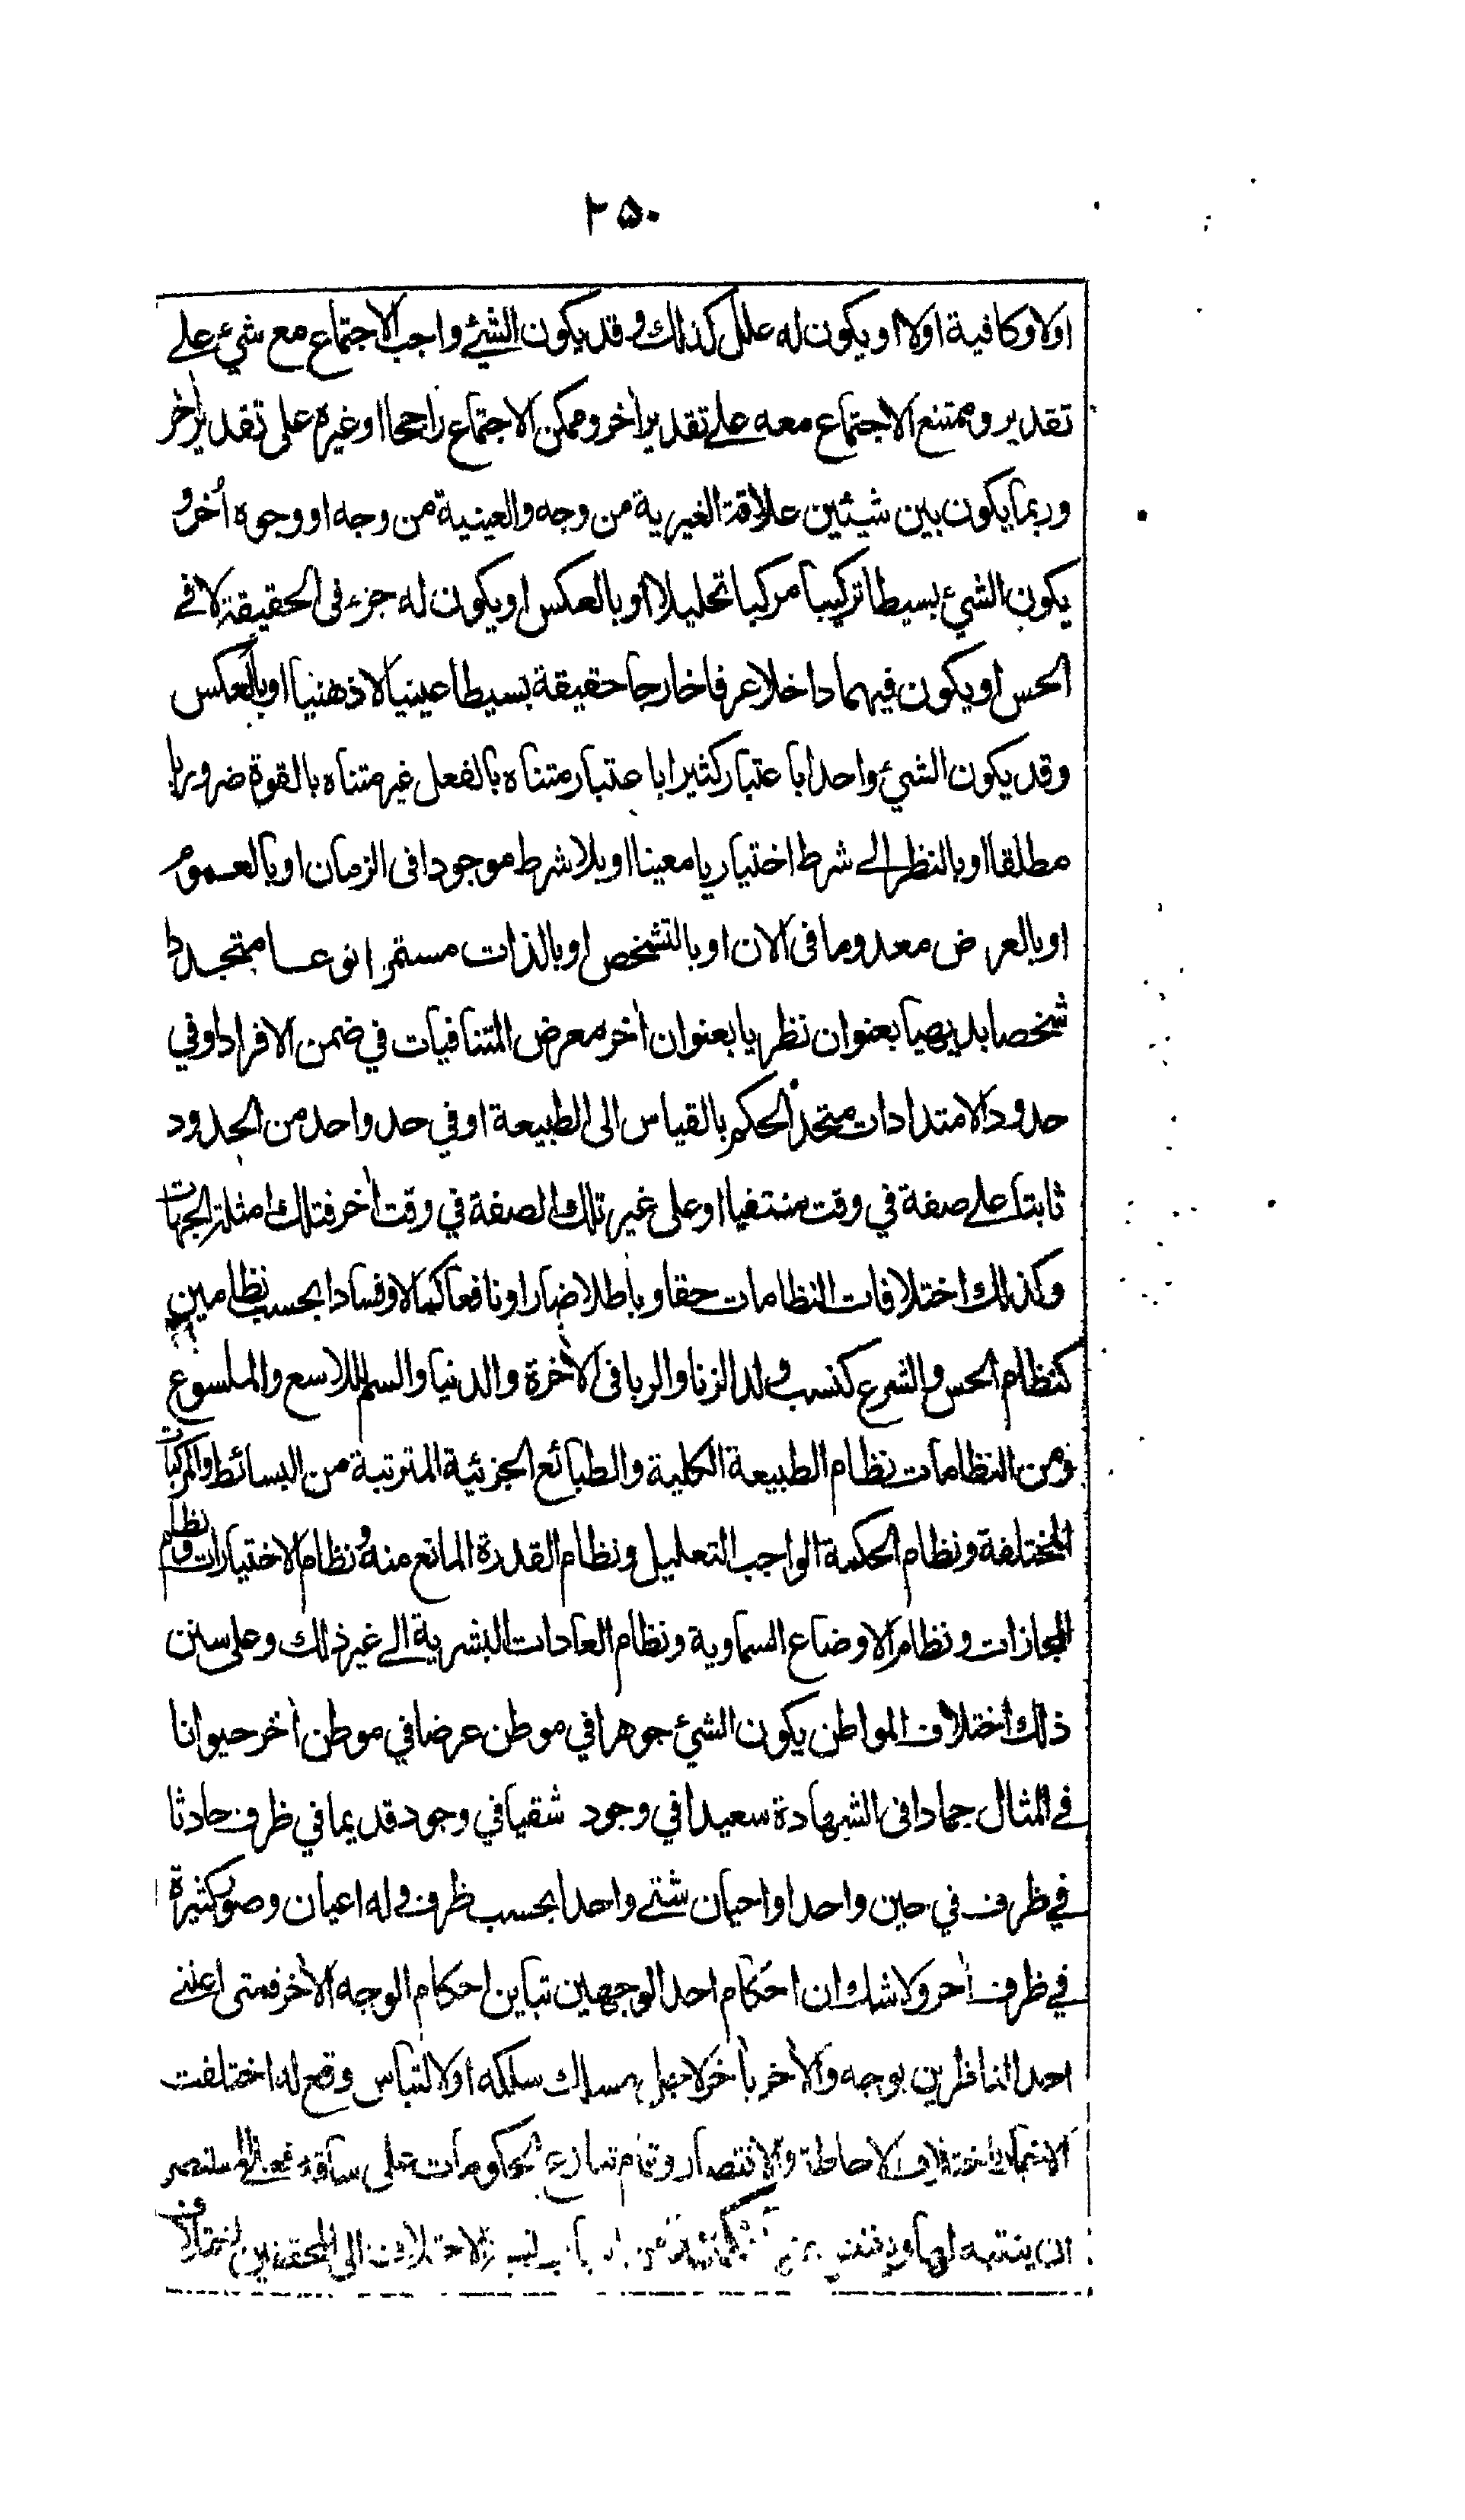 ٢٥٠
اولا وكافية اولا او يكون له علل كذلك و قد يكون الشيئ واجب الاجتماع مع شيء على
تقدير وممتنع الاجتماع معه على تقدير اٰخر وممكن الاجتماع راجحا اوغيره على تقدير اٰخر
وربما يكون بين شيئين علاقة الغيرية من وجه والعينية من وجه او وجوه اُخر و
يكون الشيء بسيطا تركيبا مركبا تحليلا او بالعكس او يكون له جزء فى الحقيقة لا فى
الحس او يكون فيهما داخلا عرفا خارجا حقيقة بسيطا عينيا لا ذهنيا او بالعكس
وقد يكون الشيء واحدا باعتبار كثيرا باعتبار متناه بالفعل غير متناه بالقوة ضروريا
مطلقا او بالنظر الى شرط اختياريا معينا او بلا شرط موجودا فى الزمان او بالعموم
او بالعرض معدوما فى الاٰن او بالتشخص او بالذات مستمرا نوعا متجددا
شخصا بديهيا بعنوان نظريا بعنوان اٰخر معرض المتنافيات في ضمن الافراد او في
حدود الامتدادات متحد الحكم بالقياس الى الطبيعة او في حد واحد من الحدود
ثابتا على صفة في وقت منتفيا او على غير تلك الصفة في وقت اٰخر فتلك امثلة الجهات
وكذلك اختلافات النظامات حقا وباطلا ضارا ونافعا كمالا وفسادا بحسب نظامين
كنظام الحس والشرع كنسب ولد الزنا والربا فى الاٰخرة والدنيا والسم للاسع والملسوع
ومن النظامات نظام الطبيعة الكلية والطبائع الجزئية المترتبة من البسائط والمركبات
المختلفة ونظام الحكمة الواجب التعليل ونظام القدرة المانع منه ونظام الاختيارات ونظام
المجازات ونظام الاوضاع السماوية ونظام العادات البشرية الى غير ذلك وعلى سنن
ذلك اختلاف المواطن يكون الشيء جوهرا في موطن عرضا في موطن اٰخر حيوانا
فى المثال جمادا فى الشهادة سعيدا في وجود شقيا في وجود قديما في ظرف حادثا
في ظرف في حين واحد او احيان شتى واحدا بحسب ظرف وله اعيان وصور كثيرة
في ظرف اٰخر ولا شك ان احكام احد الوجهين تباين احكام الوجه الاٰخر فمتى اعتنى
احد الناظرين بوجه والاٰخر باٰخر لاجل مسلك سلكه او لالتباس وقع له اختلفت
الاحاطة والاقتصار وقام تنازع الحكومات على ساقه
ان يتنبه لها الاختلاف الى المحققين اختلاف